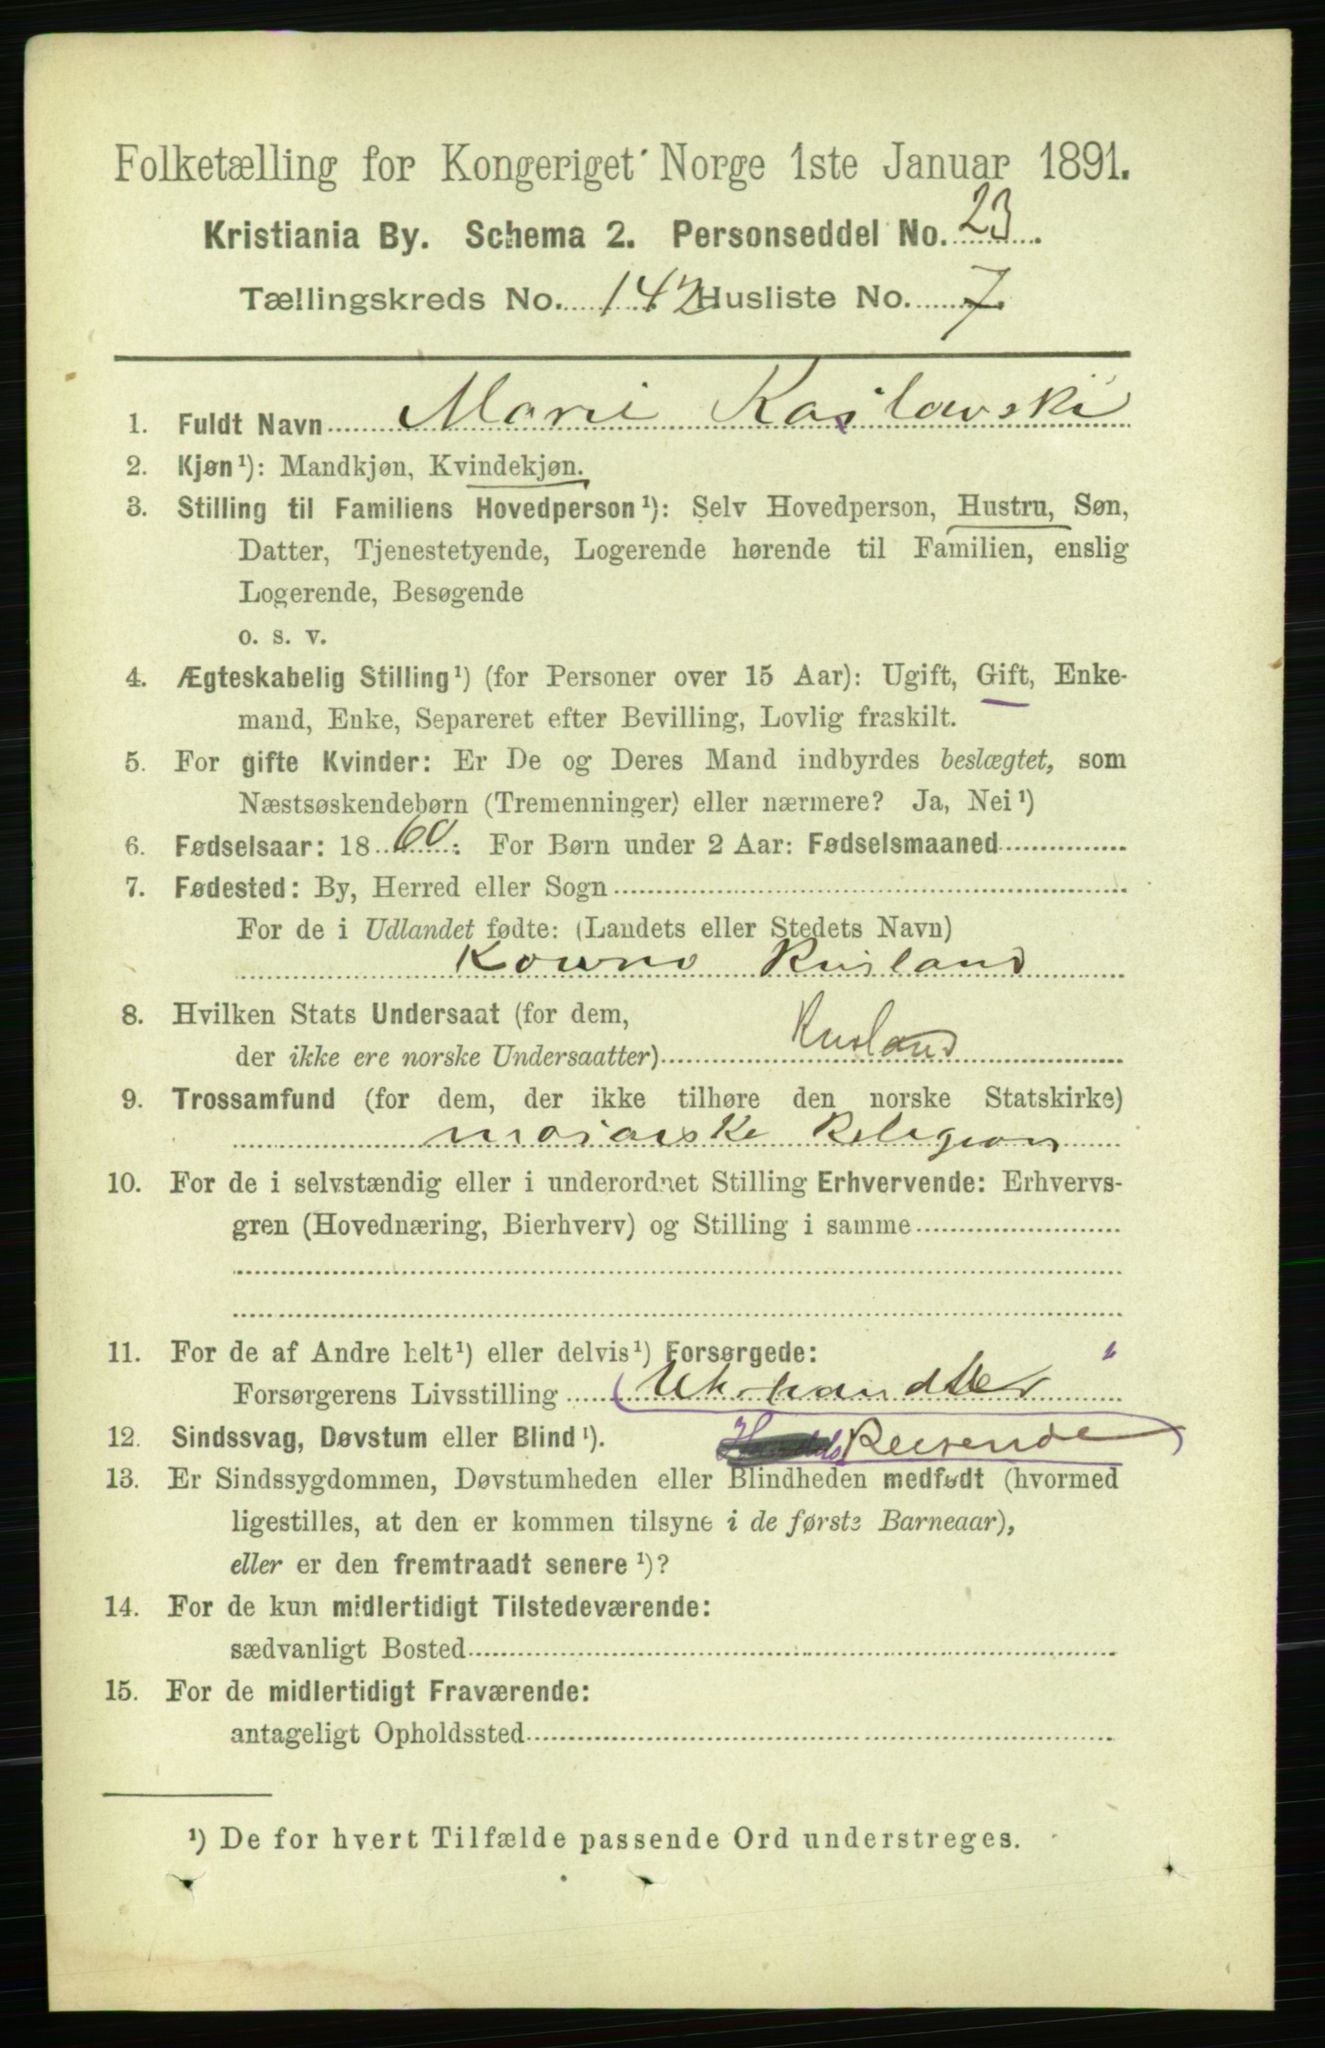 Folketælling for Kongeriget Norge 1ste Januar 1891.
Kristiania By. Schema 2. Personseddel No. 23.
Tællingskreds No. 142 Husliste No. 7
1. Fuldt Navn Marie Kaslawski
2. Kjøn¹): Mandkjøn, Kvindekjøn.
3. Stilling til Familiens Hovedperson¹): Selv Hovedperson, Hustru, Søn,
Datter, Tjenestetyende, Logerende hørende til Familien, enslig
Logerende, Besøgende
o. s. v.
4. Ægteskabelig Stilling¹) (for Personer over 15 Aar): Ugift, Gift, Enke-
mand, Enke, Separeret efter Bevilling, Lovlig fraskilt.
5. For gifte Kvinder: Er De og Deres Mand indbyrdes beslægtet, som
Næstsøskendebørn (Tremenninger) eller nærmere? Ja, Nei¹)
6. Fødselsaar: 1860. For Børn under 2 Aar: Fødselsmaaned
7. Fødested: By, Herred eller Sogn
For de i Udlandet fødte: (Landets eller Stedets Navn)
Kowno Rusland
8. Hvilken Stats Undersaat (for dem,
der ikke ere norske Undersaatter) Rusland
9. Trossamfund (for dem, der ikke tilhøre den norske Statskirke)
mosaiske Religion
10. For de i selvstændig eller i underordnet Stilling Erhvervende: Erhvervs-
gren (Hovednæring, Bierhverv) og Stilling i samme
11. For de af Andre helt¹) eller delvis¹) Forsørgede:
Forsørgerens Livsstilling Uhrhandler "
12. Sindssvag, Døvstum eller Blind¹). Handels Reisende
13. Er Sindssygdommen, Døvstumheden eller Blindheden medfødt (hvormed
ligestilles, at den er kommen tilsyne i de første Barneaar),
eller er den fremtraadt senere¹)?
14. For de kun midlertidigt Tilstedeværende:
sædvanligt Bosted
15. For de midlertidigt Fraværende:
antageligt Opholdssted
¹) De for hvert Tilfælde passende Ord understreges.